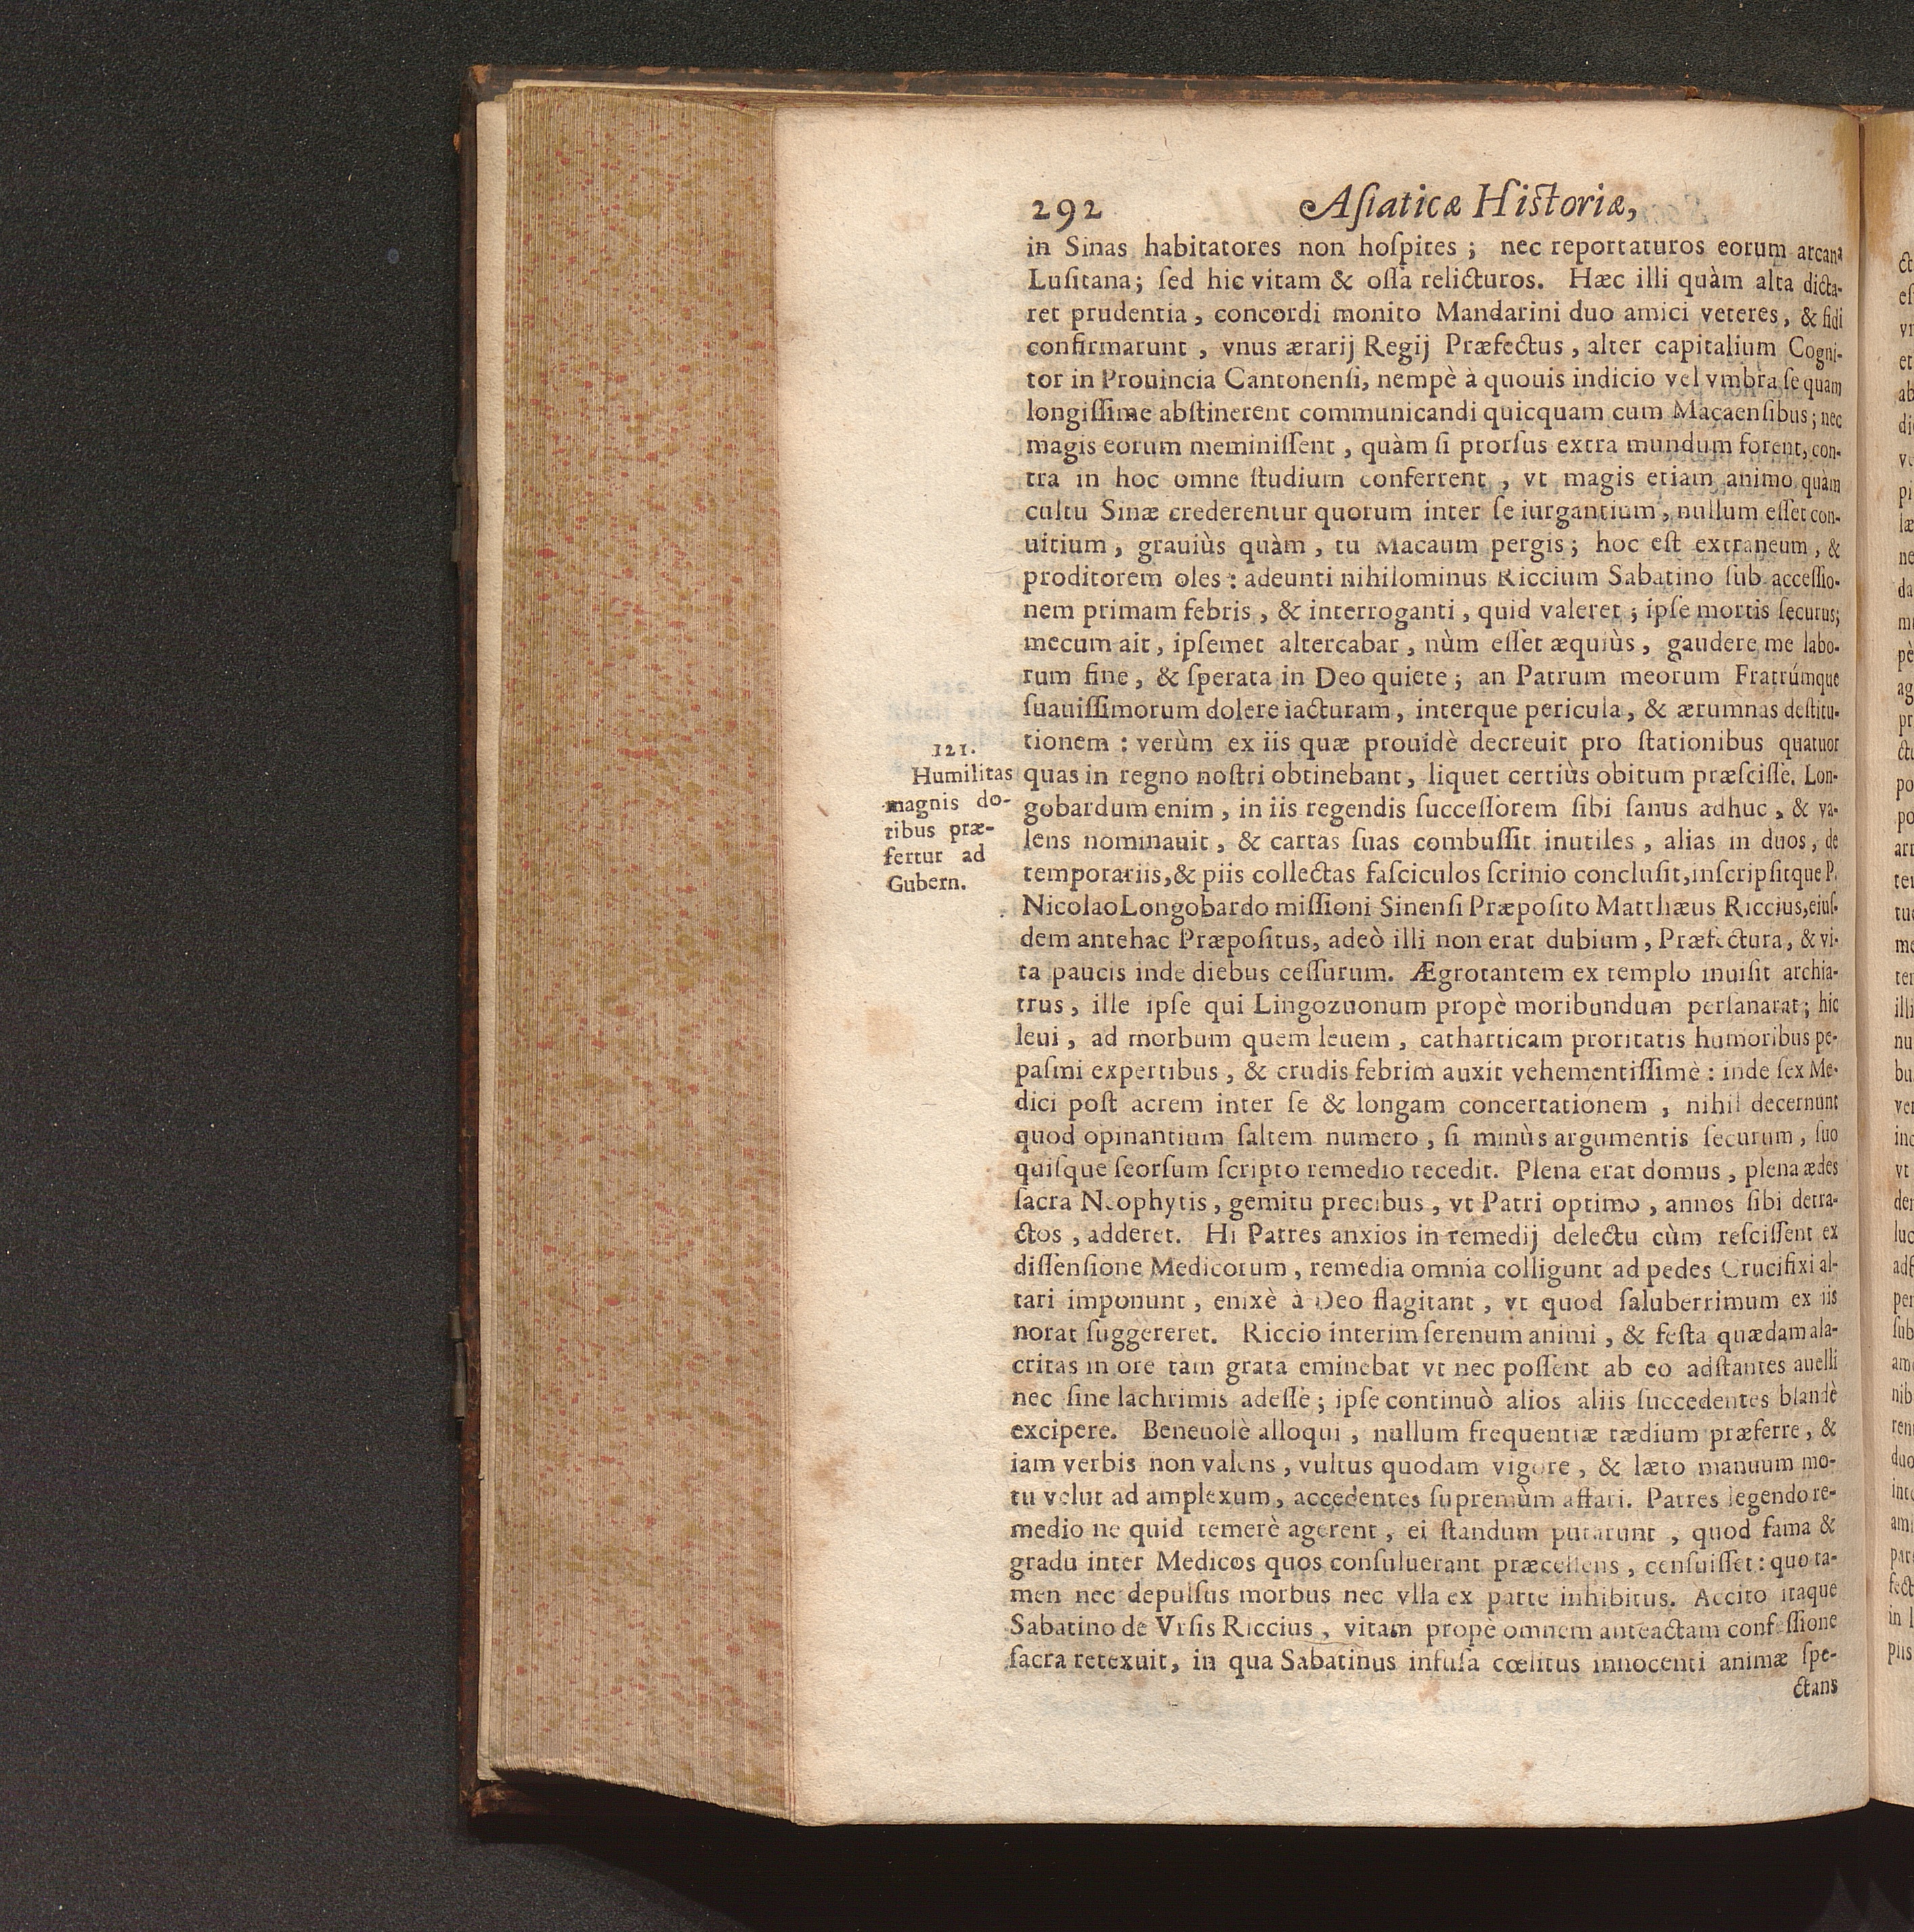 292 Aſiaticæ Hiſtoriæ,
in Sinas habitatores non hoſpites ; nec reportaturos eorum arcana
Luſitana; ſed hic vitam & oſſa relicturos. Hæc illi quàm alta dicta-
ret prudentia, concordi monito Mandarini duo amici veteres, & fidi
confirmarunt, vnus ærarij Regij Præfectus, alter capitalium Cogni-
tor in Prouincia Cantonenſi, nempè à quouis indicio vel vmbra ſe quam
longiſſime abſtinerent communicandi quicquam cum Macaenſibus; nec
magis eorum meminiſſent, quàm ſi prorſus extra mundum forent, con-
tra in hoc omne ſtudium conferrent, vt magis etiam animo quàm
cultu Sinæ crederentur quorum inter ſe iurgantium, nullum eſſet con-
uitium, grauiùs quàm, tu Macaum pergis; hoc eſt extraneum, &
proditorem oles : adeunti nihilominus Riccium Sabatino ſub acceſſio-
nem primam febris, & interroganti, quid valeret ; ipſe mortis ſecurus;
mecum ait, ipſemet altercabar, nùm eſſet æquiùs, gaudere me labo-
rum fine, & ſperata in Deo quiete; an Patrum meorum Fratrúmque
ſuauiſſimorum dolere iacturam, interque pericula, & ærumnas deſtitu-
tionem : verùm ex iis quæ prouidè decreuit pro ſtationibus quatuor
quas in regno noſtri obtinebant, liquet certiùs obitum præſciſſe. Lon-
gobardum enim, in iis regendis ſucceſſorem ſibi ſanus adhuc, & va-
lens nominauit, & cartas ſuas combuſſit inutiles, alias in duos, de
temporariis, & piis collectas faſciculos ſcrinio concluſit, inſcripſitque P.
Nicolao Longobardo miſſioni Sinenſi Præpoſito Matthæus Riccius, eiuſ-
dem antehac Præpoſitus, adeò illi non erat dubium, Præfectura, & vi-
ta paucis inde diebus ceſſurum. Ægrotantem ex templo inuiſit archia-
trus, ille ipſe qui Lingozuonum propè moribundum perſanarat; hic
leui, ad morbum quem leuem, catharticam proritatis humoribus pe-
paſmi expertibus, & crudis febrim auxit vehementiſſimè : inde ſex Me-
dici poſt acrem inter ſe & longam concertationem, nihil decernunt
quod opinantium ſaltem numero, ſi minùs argumentis ſecurum, ſuo
quiſque ſeorſum ſcripto remedio recedit. Plena erat domus, plena ædes
ſacra Neophytis, gemitu precibus, vt Patri optimo, annos ſibi detra-
ctos, adderet. Hi Patres anxios in remedij delectu cùm reſciſſent ex
diſſenſione Medicorum, remedia omnia colligunt ad pedes Crucifixi al-
tari imponunt, enixè à Deo flagitant, vt quod ſaluberrimum ex iis
norat ſuggereret. Riccio interim ſerenum animi, & feſta quædam ala-
critas in ore tàm grata eminebat vt nec poſſent ab eo adſtantes auelli
nec ſine lachrimis adeſſe; ipſe continuò alios aliis ſuccedentes blandè
excipere. Beneuolè alloqui, nullum frequentiæ tædium præferre, &
iam verbis non valens, vultus quodam vigore, & læto manuum mo-
tu velut ad amplexum, accedentes ſupremùm affari. Patres legendo re-
medio ne quid temerè agerent, ei ſtandum putarunt, quod fama &
gradu inter Medicos quos conſuluerant præcellens, cenſuiſſet : quo ta-
men nec depulſus morbus nec vlla ex parte inhibitus. Accito itaque
Sabatino de Vrſis Riccius, vitam propè omnem anteactam confeſſione
ſacra retexuit, in qua Sabatinus infuſa cœlitus innocenti animæ ſpe-
ctans
121.
Humilitas
magnis do-
tibus præ-
fertur ad
Gubern.